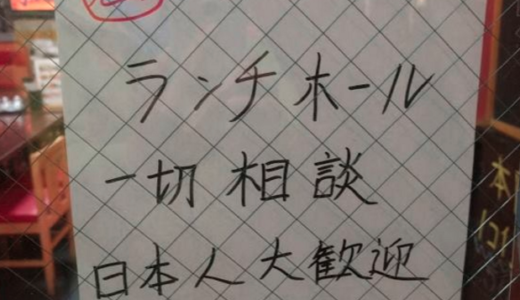 ランチホール
一切相談
日本人大歓迎